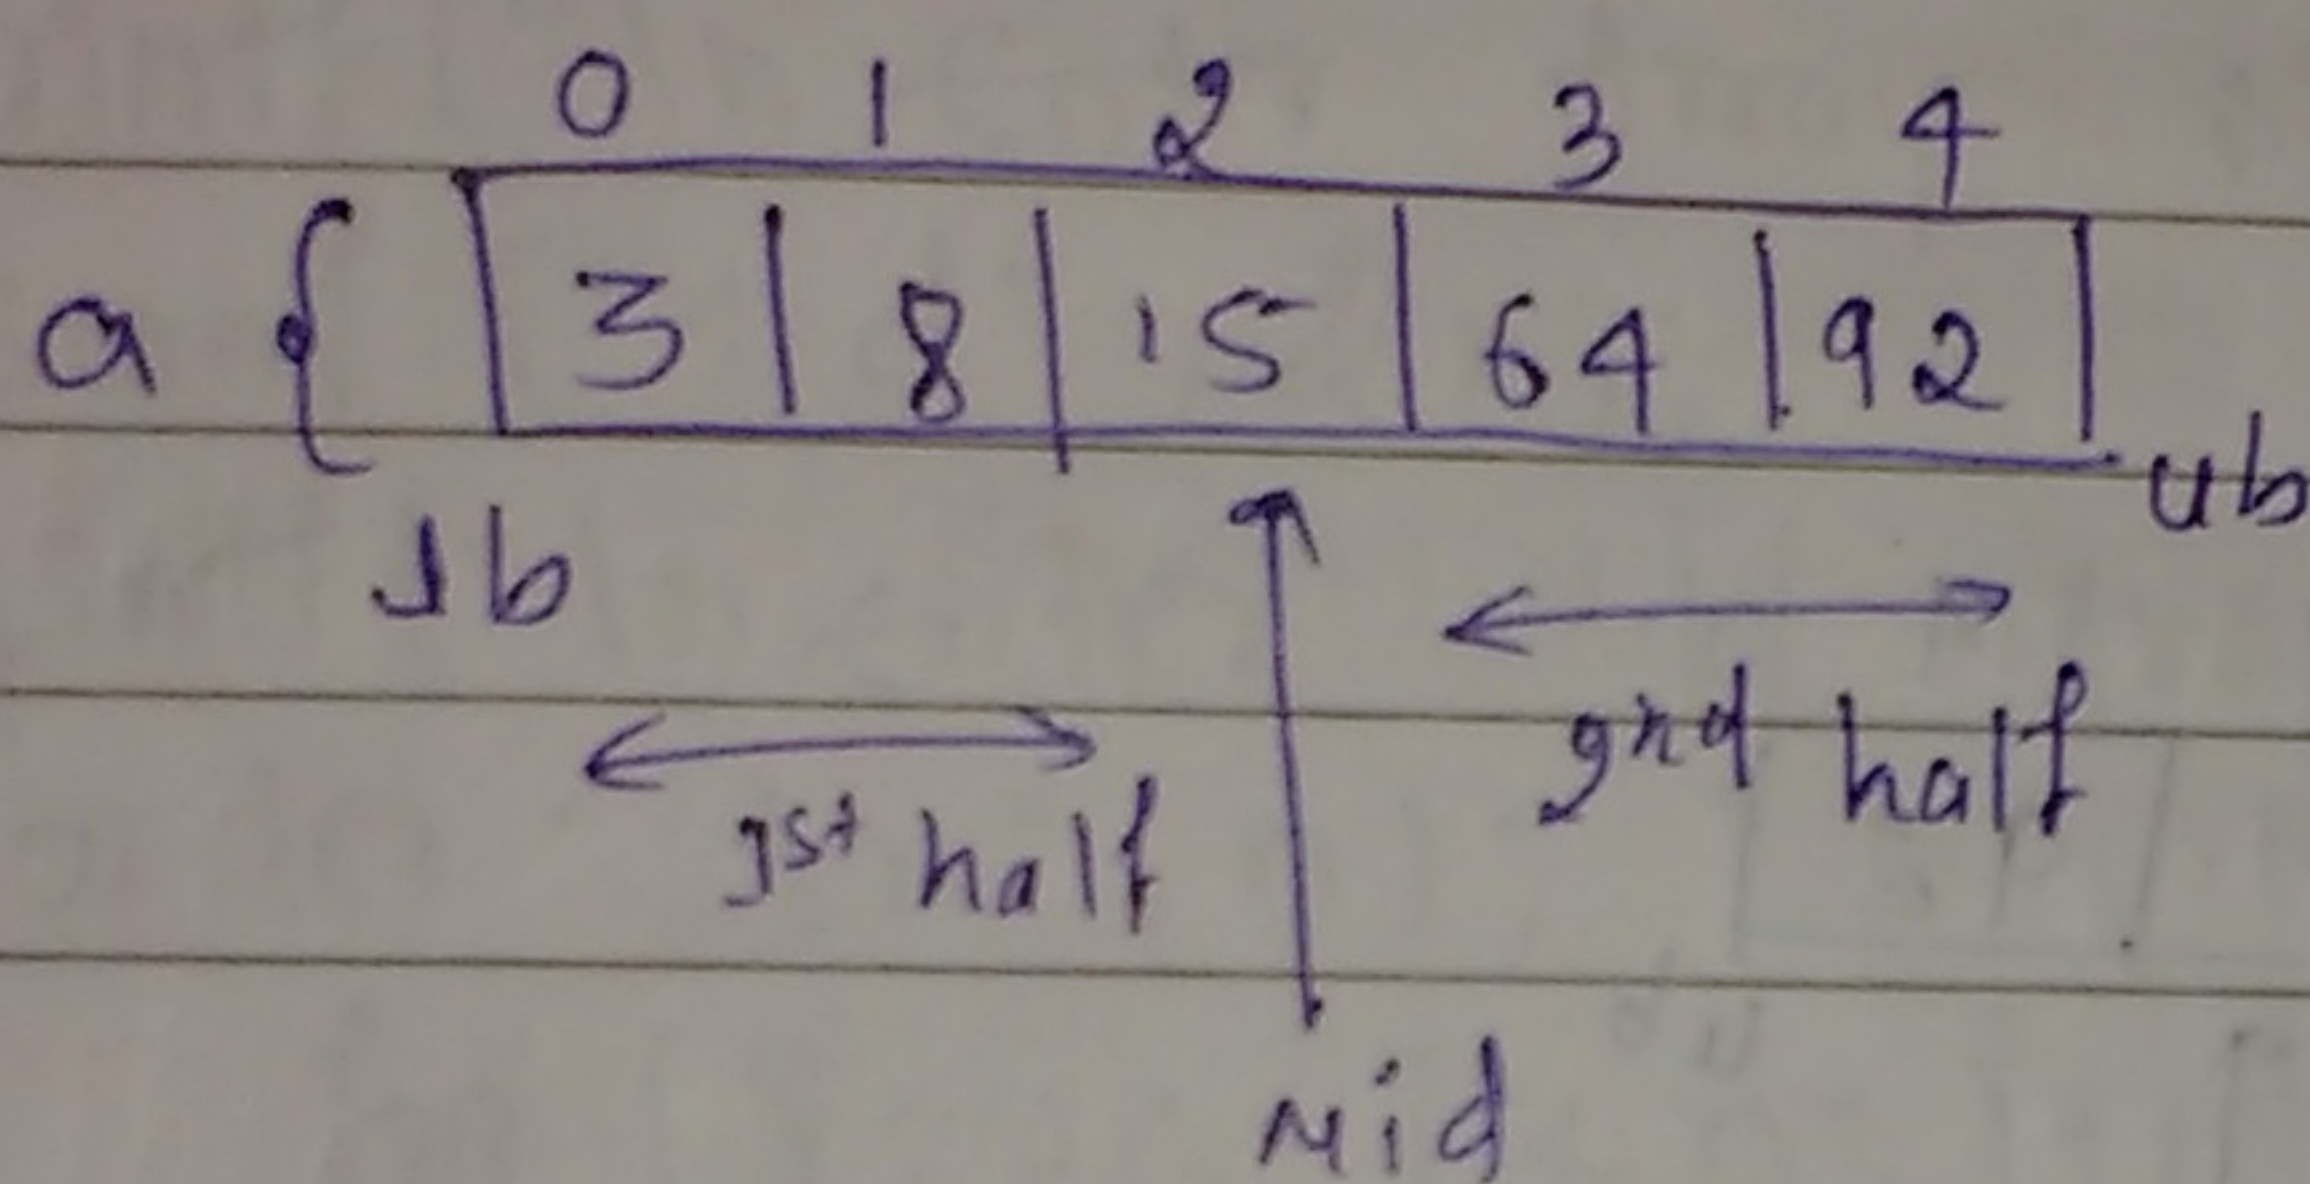 0 1 2 3 4
a { 3 | 8 | 15 | 64 | 92
lb ub
1st half 2nd half
Mid